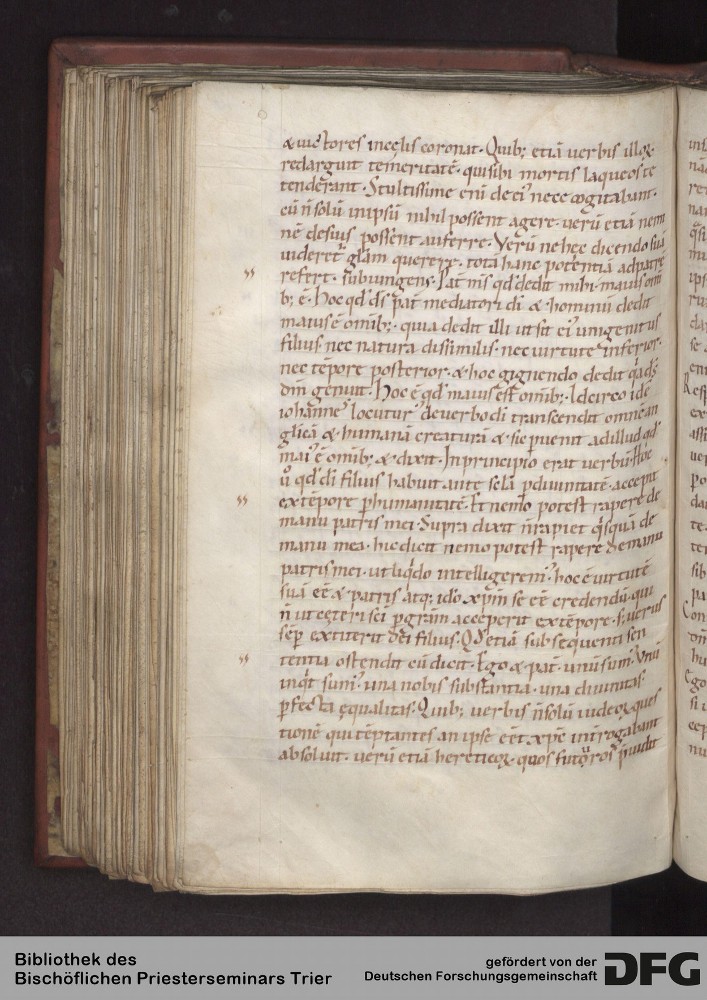 & uictores in cęlis coronat. Quib; etiā uerbis illoꝝ
redarguit temeritatē. qui sibi mortis laqueos te
tenderant. Stultissime enī de ei' nece cogitabant.
cū ñ solū in ipsū nihil possent agere. uerū etiā nem
nē de suis possent auferre. Verū ne hęc dicendo suā
uideret głam querere. totā hanc potentiā ad patrē
refert. subiungens. Pat̄ m̄s qd̄ dedit mihi. maius om̄i
b; ē. Hoc qd̄ d̄s pat̄ mediatori d̄i & hominū dedit
maius ē om̄ib;. quia dedit illi ut sit ei' unigenitus
filius nec natura dissimilis. nec uirtute inferior.
nec tēpore posterior. & hoc gignendo dedit
dm̄ genuit. Hoc ē qd̄ maius est om̄ib;. Idcirco idē
iohannes locutur' de uerbo d̄i transcendit omnē an
glicā & humanā creaturā & sic puenit ad illud qd̄
mai' ē om̄ib; & dixit. In principio erat uerbū. Hoc
u̅ qd̄ d̄i filius habuit ante sc̄la p diuinitatē. accepit
ex tēpore p humanitatē. Et nemo potest rapere de
manu patris mei. Supra dixit ñ rapiet q̇squā de
manu mea. hic dicit nemo potest rapere de manu
patris mei. ut liq̇do intelligerem'. hoc ē uirtutē
suā eē & patris atq; idō xp̄m se eē credendū. qui
ñ ut cęteri sc̄i p gr̄am acceperit ex tēpore. s; uerus
sēp extiterit dei filius. Qd̄ etiā subsequenti sen
tentia ostendit cū dicit. Ego & pat̄ unū sum'. Vnū
inq̇t sum'. una nobis substantia. una diuinitas.
pfecta ęqualitas. Quib; uerbis ñ solū iudeoꝝ ques
tionē qui tēptantes an ipse eēt xp̄c int̄rogabant
absoluit. uerū etiā hereticoꝝ. quos futuros p̄uidit
Bibliothek des
Bischöflichen Priesterseminars Trier
gefördert von der
Deutschen Forschungsgemeinschaft
DFG